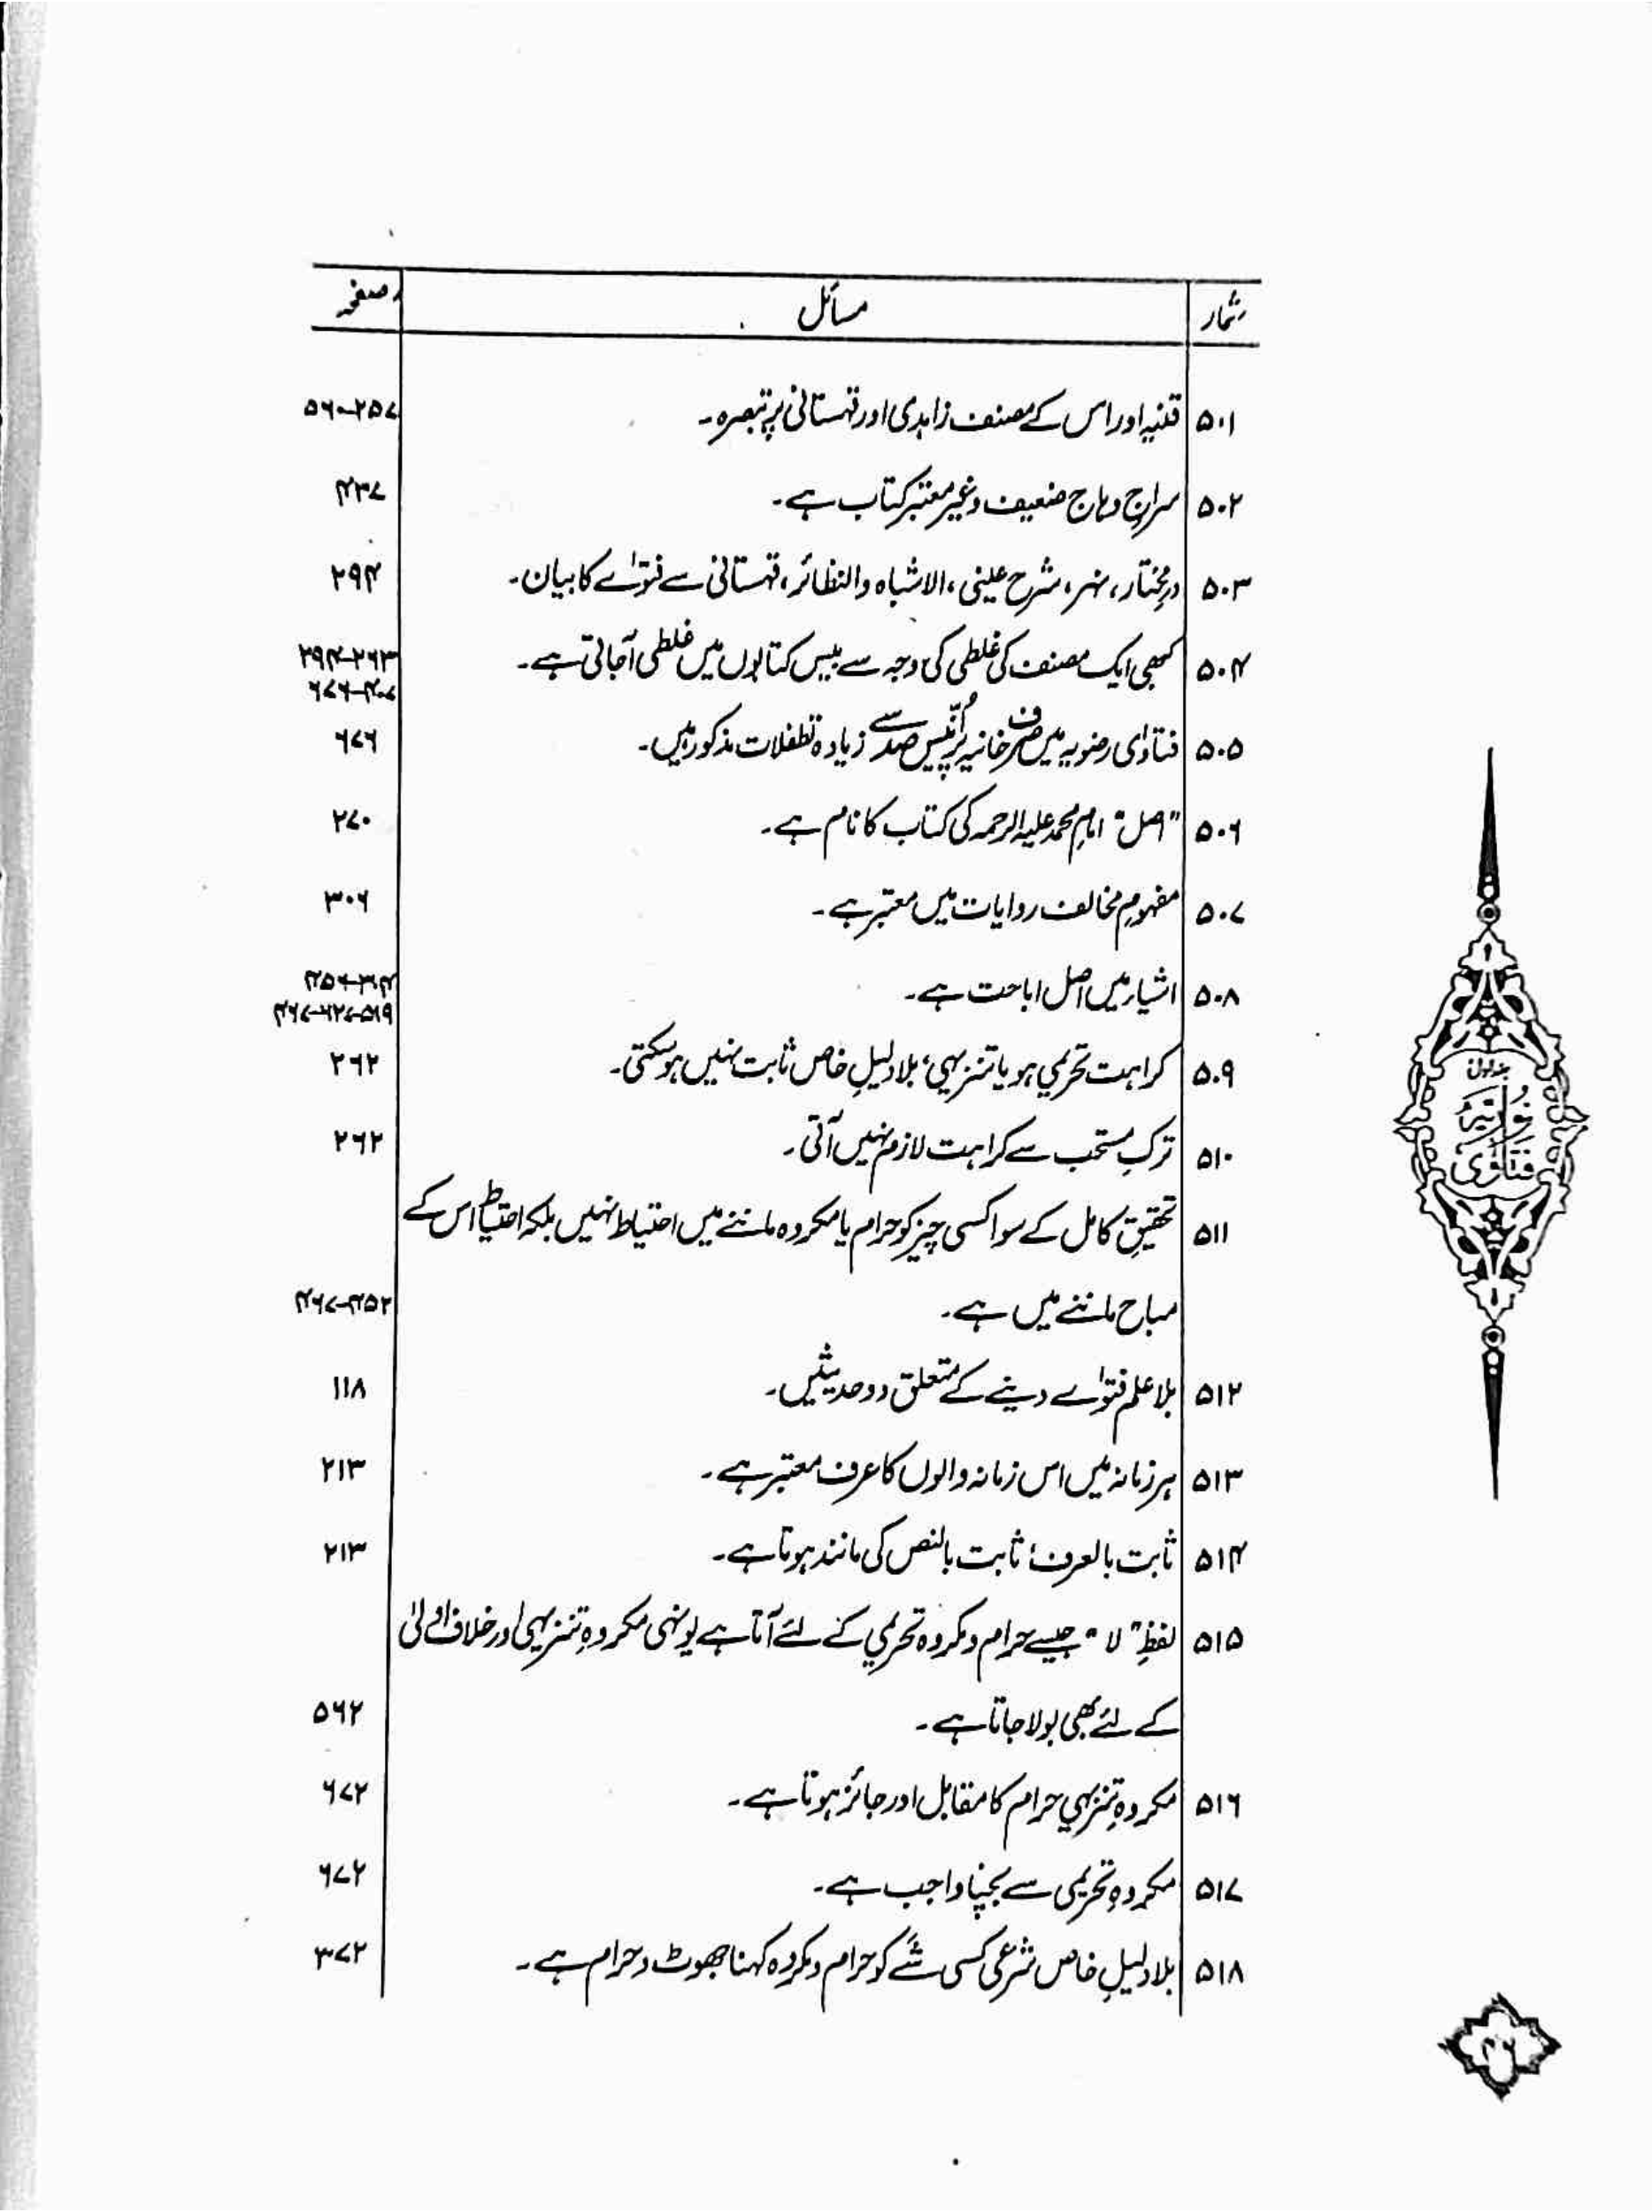 شمار | مسائل | صفحہ
۵۰۱ | قنیہ اور اس کے مصنف زاہدی اور قہستانی پر تبصرہ۔ | ۲۵۷-۵۶۰
۵۰۲ | سراج وہاج ضعیف و غیر معتبر کتاب ہے۔ | ۴۳۷
۵۰۳ | درمختار، نہر، شرح عینی، الاشباہ والنظائر، قہستانی سے فتوٰے کا بیان۔ | ۲۹۴
۵۰۴ | کبھی ایک مصنف کی غلطی کی وجہ سے بیس کتابوں میں غلطی آجاتی ہے۔ | ۲۶۳-۲۹۴
۴۰۷-۶۷۶
۵۰۵ | فتاوٰی رضویہ میں صرف خانیہ پر اُنّیس صد سے زیادہ تطفلات مذکور ہیں۔ | ۶۷۶
۵۰۶ | "اصل" امامِ محمد علیہ الرحمہ کی کتاب کا نام ہے۔ | ۲۷۰
۵۰۷ | مفہومِ مخالف روایات میں معتبر ہے۔ | ۳۰۶
۵۰۸ | اشیار میں اصل اباحت ہے۔ | ۳۶۴-۴۵۶
۵۱۹-۶۲۷-۴۶۷
۵۰۹ | کراہت تحریمی ہو یا تنزیہی؛ بلا دلیلِ خاص ثابت نہیں ہو سکتی۔ | ۲۶۲
۵۱۰ | ترکِ مستحب سے کراہت لازم نہیں آتی۔ | ۲۶۲
۵۱۱ | تحقیقِ کامل کے سوا کسی چیز کو حرام یا مکروہ ماننے میں احتیاط نہیں بلکہ احتیاط اس کے
مباح ماننے میں ہے۔ | ۴۵۲-۴۶۷
۵۱۲ | بلا علم فتوٰے دینے کے متعلق دو حدیثیں۔ | ۱۱۸
۵۱۳ | ہر زمانہ میں اس زمانہ والوں کا عرف معتبر ہے۔ | ۲۱۳
۵۱۴ | ثابت بالعرف؛ ثابت بالنص کی مانند ہوتا ہے۔ | ۲۱۳
۵۱۵ | لفظِ "لا" جیسے حرام و مکروہ تحریمی کے لئے آتا ہے یونہی مکروہِ تنزیہی اور خلاف اولٰی
کے لئے بھی بولا جاتا ہے۔ | ۵۶۲
۵۱۶ | مکروہِ تنزیہی حرام کا مقابل اور جائز ہوتا ہے۔ | ۶۷۲
۵۱۷ | مکروہِ تحریمی سے بچنا واجب ہے۔ | ۶۷۲
۵۱۸ | بلا دلیلِ خاص شرعی کسی شَے کو حرام و مکروہ کہنا جھوٹ و حرام ہے۔ | ۳۷۲
جلد اول
نوریہ
فتاوٰی